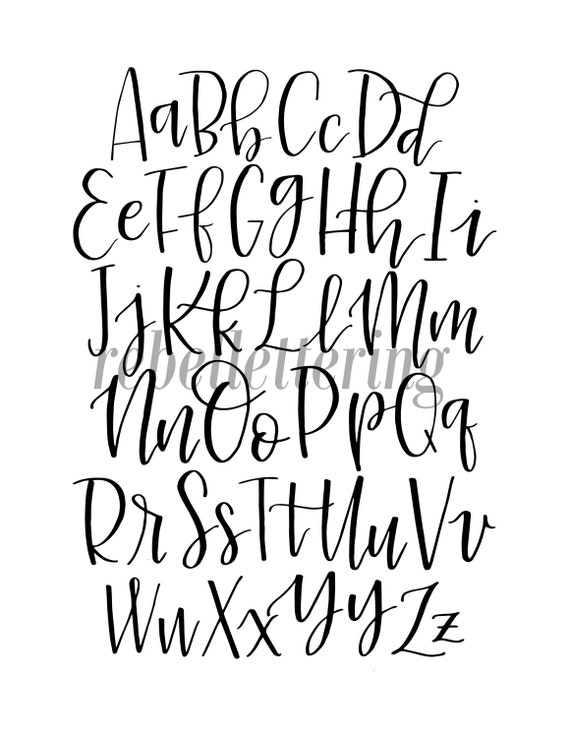 AaBbCcDd
EeFfGgHhIi
JjKkLlMm
rebellettering
NnOoPpQq
RrSsTtUuVv
WwXxYyZz